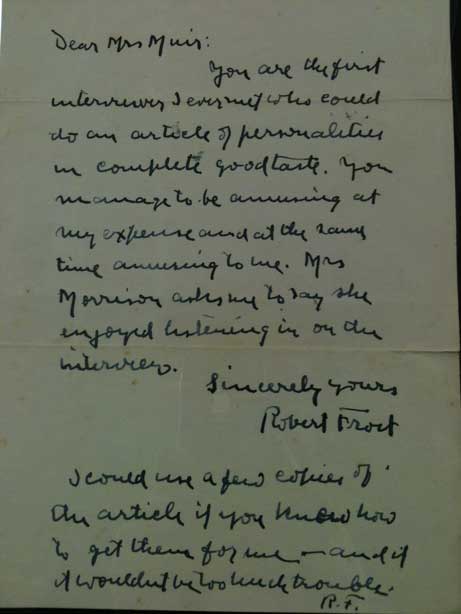 Dear Mrs Muir:
You are the first
interviewer I ever met who could
do an article of personalities
in complete good taste. You
manage to be amusing at
my expense and at the same
time amusing to me. Mrs
Morrison asks me to say she
enjoyed listening in on the
interview.
Sincerely yours
Robert Frost
I could use a few copies of
the article if you know how
to get them for me — and if
it wouldn't be too much trouble.
R.F.